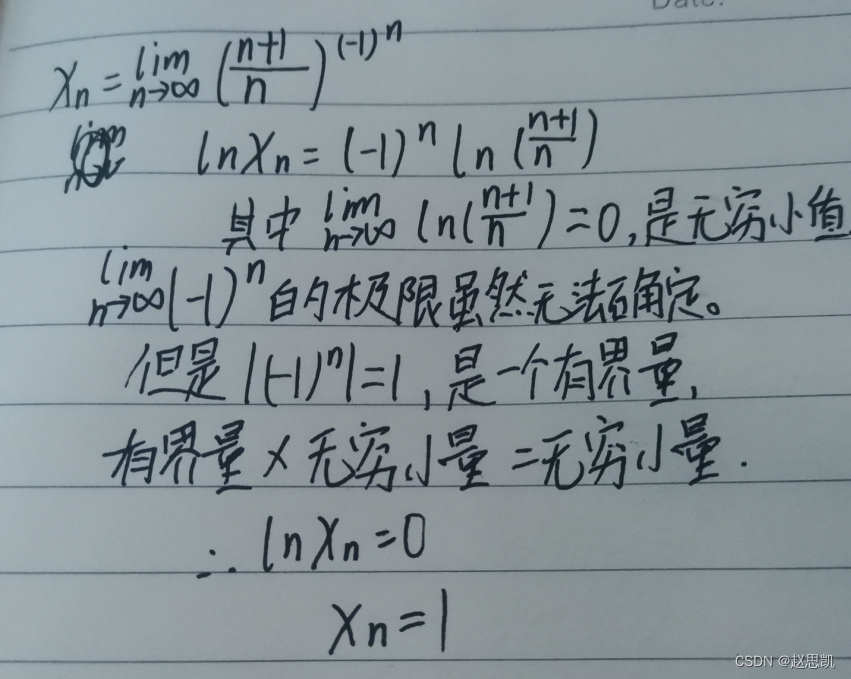 Date.
Xn = lim n→∞ (n+1/n)^(-1)^n
ln Xn = (-1)^n ln (n+1/n)
其中 lim n→∞ ln(n+1/n) = 0, 是无穷小值
lim n→∞ (-1)^n 的极限虽然无法确定。
但是 |(-1)^n| = 1, 是一个有界量,
有界量 × 无穷小量 = 无穷小量.
∴ ln Xn = 0
Xn = 1
CSDN @赵思凯